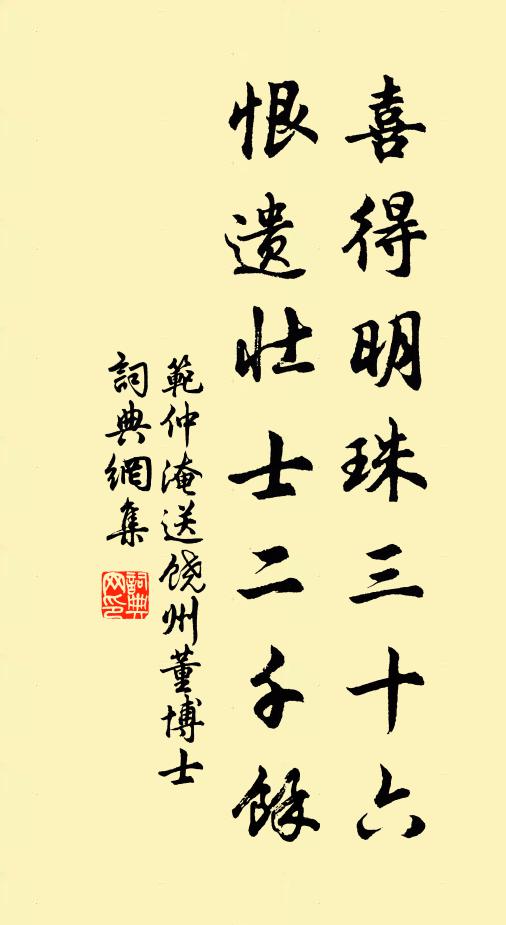 喜得明珠三十六
恨遗壮士二千餘
範仲淹送饶州董博士
詞典網集
詞典网印